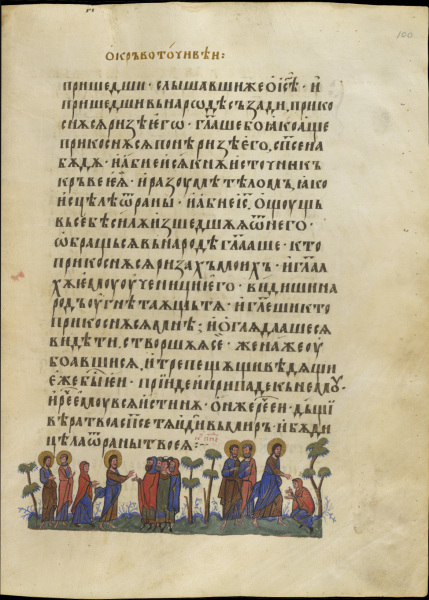 100
ѡ кръвоточивѣи:
пришедши · слышавшиже о і҃сѣ · и
пришедши въ народѣ съзади, прико
снѫсѧ ризѣ его · г҃лаше бо ꙗко аще
прикоснѫсѧ понѣ ризѣ его, сп҃сена
бѫдѫ · и абиеисѧкнѫ источникъ
кръве еѫ · и разоумѣ тѣломъ, ꙗко
исцѣлѣ ѿ раны · и абие і҃с · ощоущь
въ себѣ силѫ изшедшѫѧ ѿ него ·
ѡбращьсѧ въ народѣ г҃лааше · кто
прикоснѫсѧ ризахъ моихъ · и г҃лаа
хѫ емоу оученици его · видиши на
родъ оугнѣтаѫщь тѧ · и г҃леши кто
прикоснѫсѧ мнѣ; и огладаашесѧ
видѣти, створшѫѧ се · женаже оу
боавшисѧ, и трепещѫщи вѣдѧщи
еже бы еи · прїиде и припаде къ немоу ·
и рече емоу всѫ истинѫ · он же рече еи · дъщи
вѣра твоа сп҃се тѧ иди въ миръ · и бѫди
цѣла ѿ раны твоеѧ :~